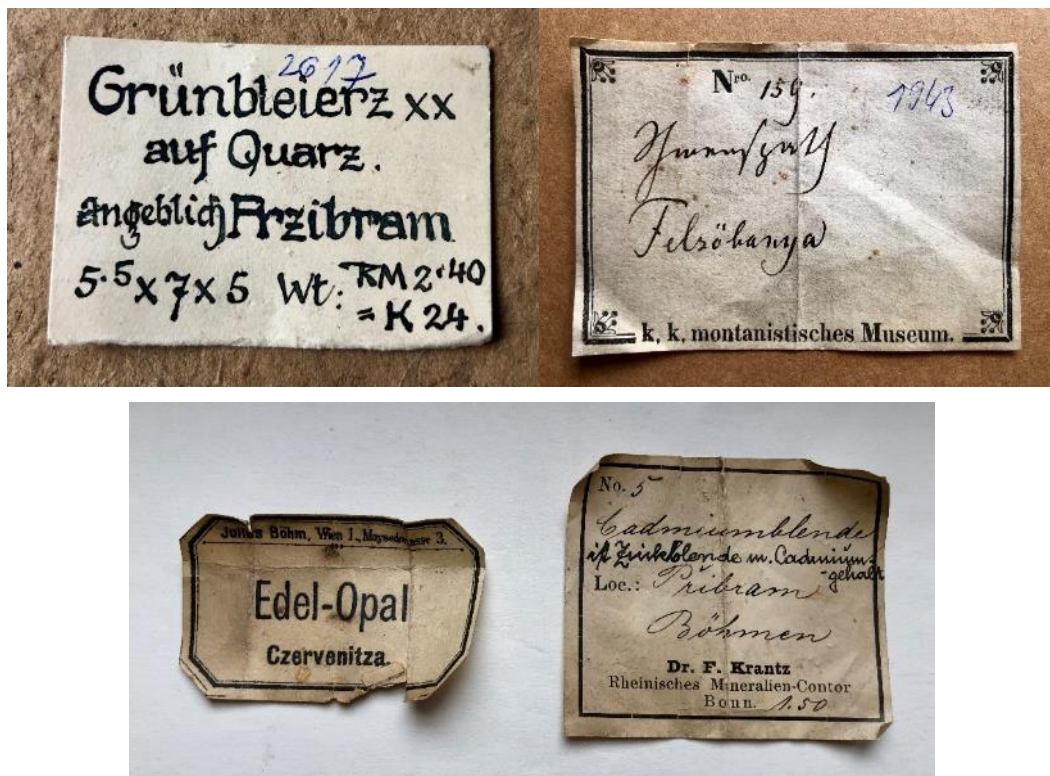 2617
Grünbleierz xx
auf Quarz.
angeblich Przibram
5·5 x 7 x 5 Wt: RM 2·40
= K 24.
Nro. 159.
1943
Felsöbanya
k. k. montanistisches Museum.
Julius Böhm, Wien I., Maysedergasse 3.
Edel-Opal
Czervenitza.
No. 5
Cadmiumblende
ist Zinkblende m. Cadmium-
gehalt
Loc.: Pribram
Böhmen
Dr. F. Krantz
Rheinisches Mineralien-Contor
Bonn. 1.50